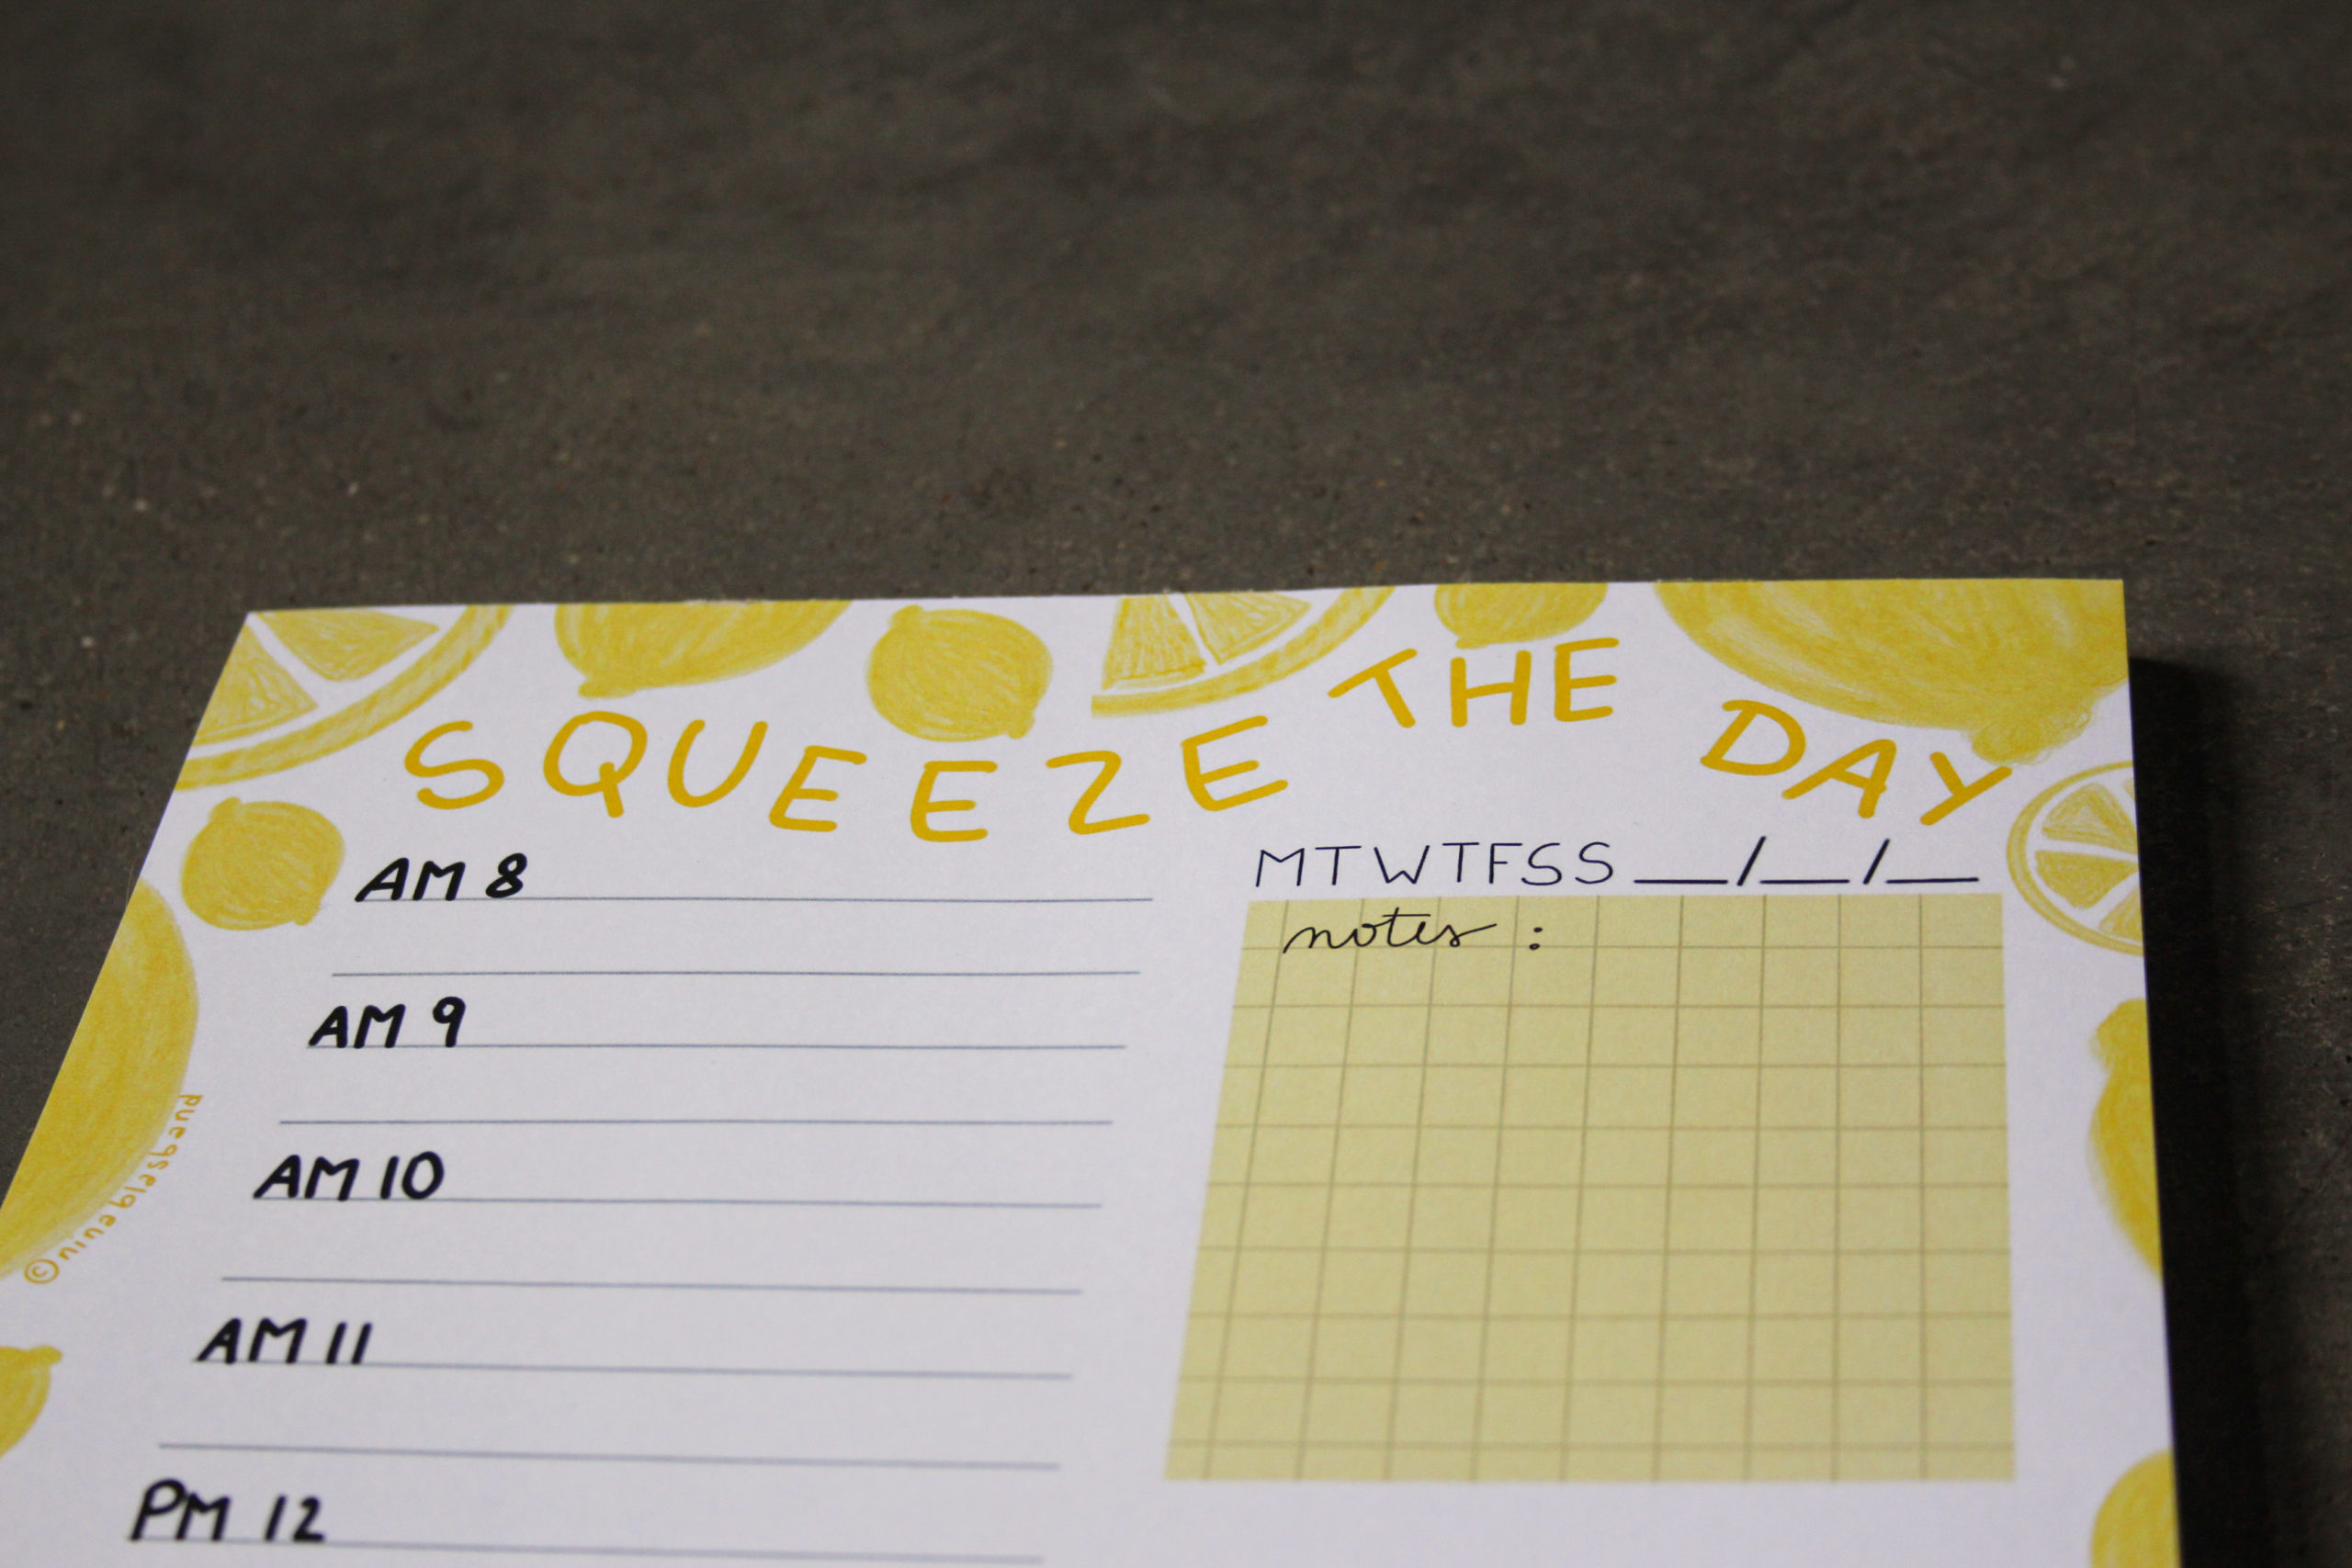 SQUEEZE THE DAY
MTWTFSS __/__/__
notes :
AM 8
AM 9
AM 10
AM 11
PM 12
©ninablasband